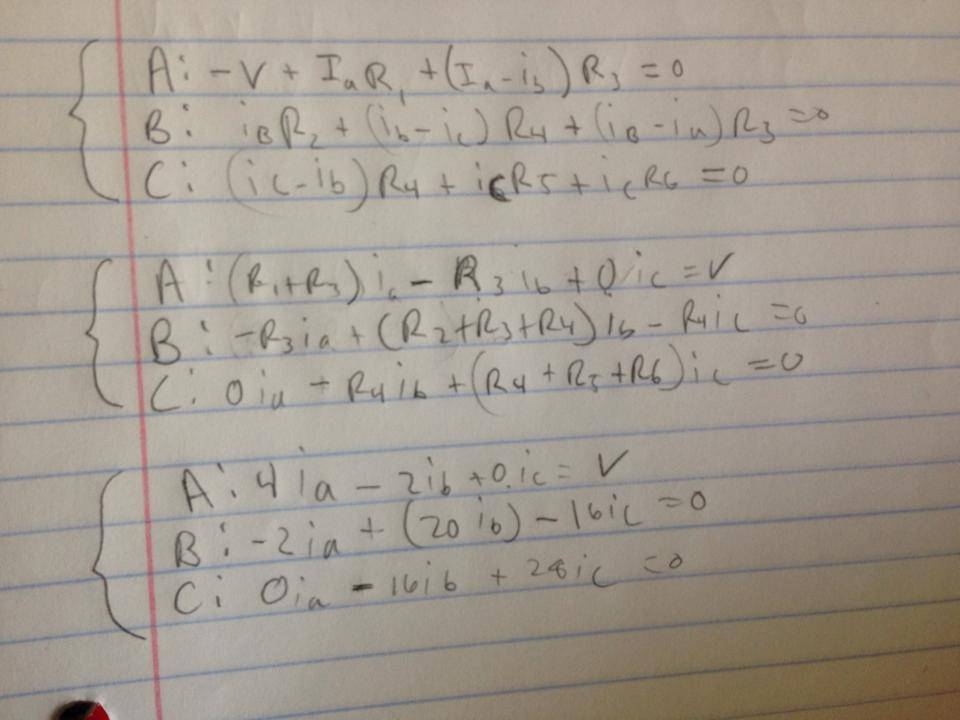 A: -V + IaR1 + (Ia-ib) R3 = 0
B: iBR2 + (ib-ic) R4 + (iB-ia) R3 = 0
C: (ic-ib) R4 + icR5 + icR6 = 0
A: (R1+R3) ia - R3 ib + 0 ic = V
B: -R3ia + (R2+R3+R4) ib - R4ic = 0
C: 0ia + R4ib + (R4 + R5 + R6) ic = 0
A: 4ia - 2ib + 0.ic = V
B: -2ia + (20 ib) - 16ic = 0
C: 0ia - 16ib + 28ic = 0